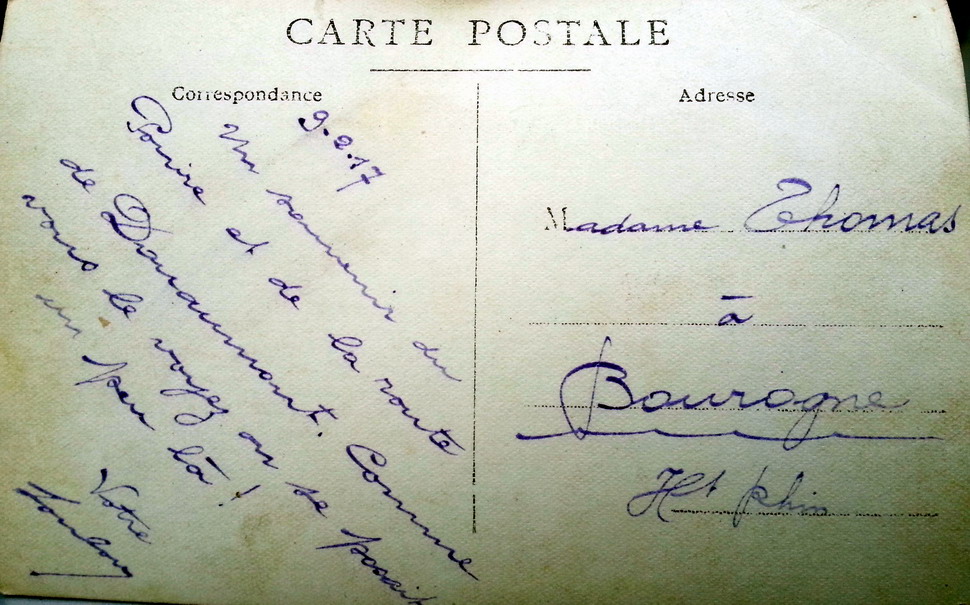 CARTE POSTALE
Correspondance
9.2.17
Un souvenir du
Poivre et de la route
de Douaumont. Comme
vous le voyez on se posait
un peu là !
Votre
Adresse
Madame Thomas
à
Bourogne
Ht Rhin